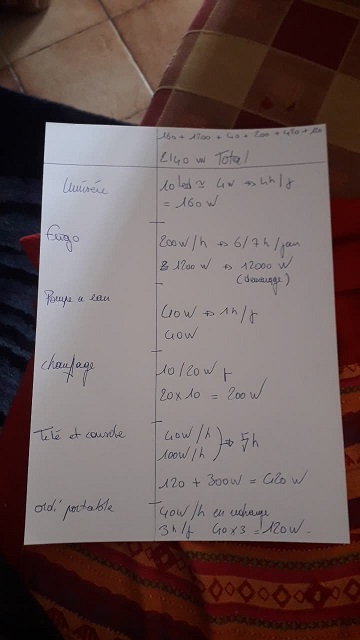 160 + 1200 + 40 + 200 + 420 + 120
2140 w Total
Lumière
10 led ≃ 4w → 4h/j
= 160 W
Frigo
200W/h → 6/7h/jour
1200 W → 12000 W
(demarrage)
Pompe a eau
40W → 1h/j
40W
chauffage
10/20W
20x10 = 200W
Télé et
40W/h
100W/h → 3h
120 + 300W = 420W
ordi portable
40W/h en recharge
3h/j 40x3 = 120W.